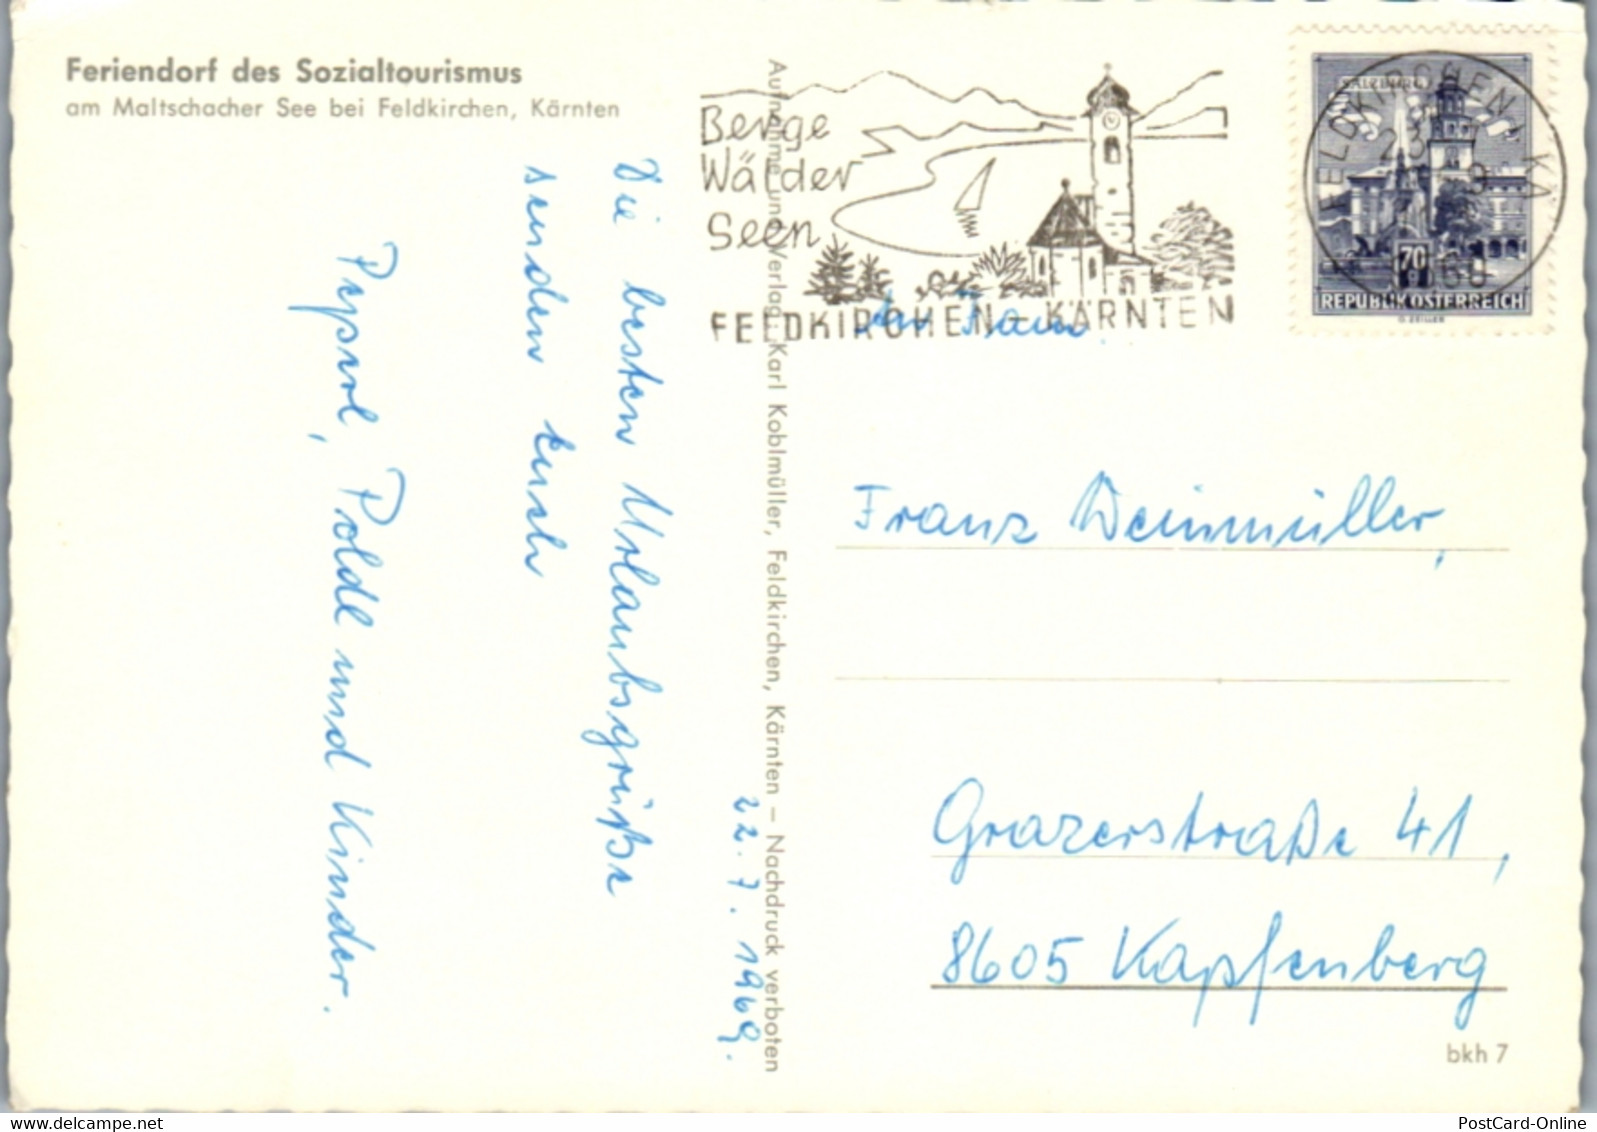 Feriendorf des Sozialtourismus
am Maltschacher See bei Feldkirchen, Kärnten
Die besten Urlaubsgrüße
senden Euch
Pepperl, Poldl und Kinder.
22.7.1969.
Aufnahme und Verlag: Karl Koblmüller, Feldkirchen, Kärnten – Nachdruck verboten
Berge
Wälder
Seen
FELDKIRCHEN-KÄRNTEN
SALZBURG
70
REPUBLIK OSTERREICH
FELDKIRCHEN
9560
Franz Deinmüller,
Grazerstraße 41,
8605 Kapfenberg
bkh 7
PostCard-Online
ansichtskarten-lindner.at